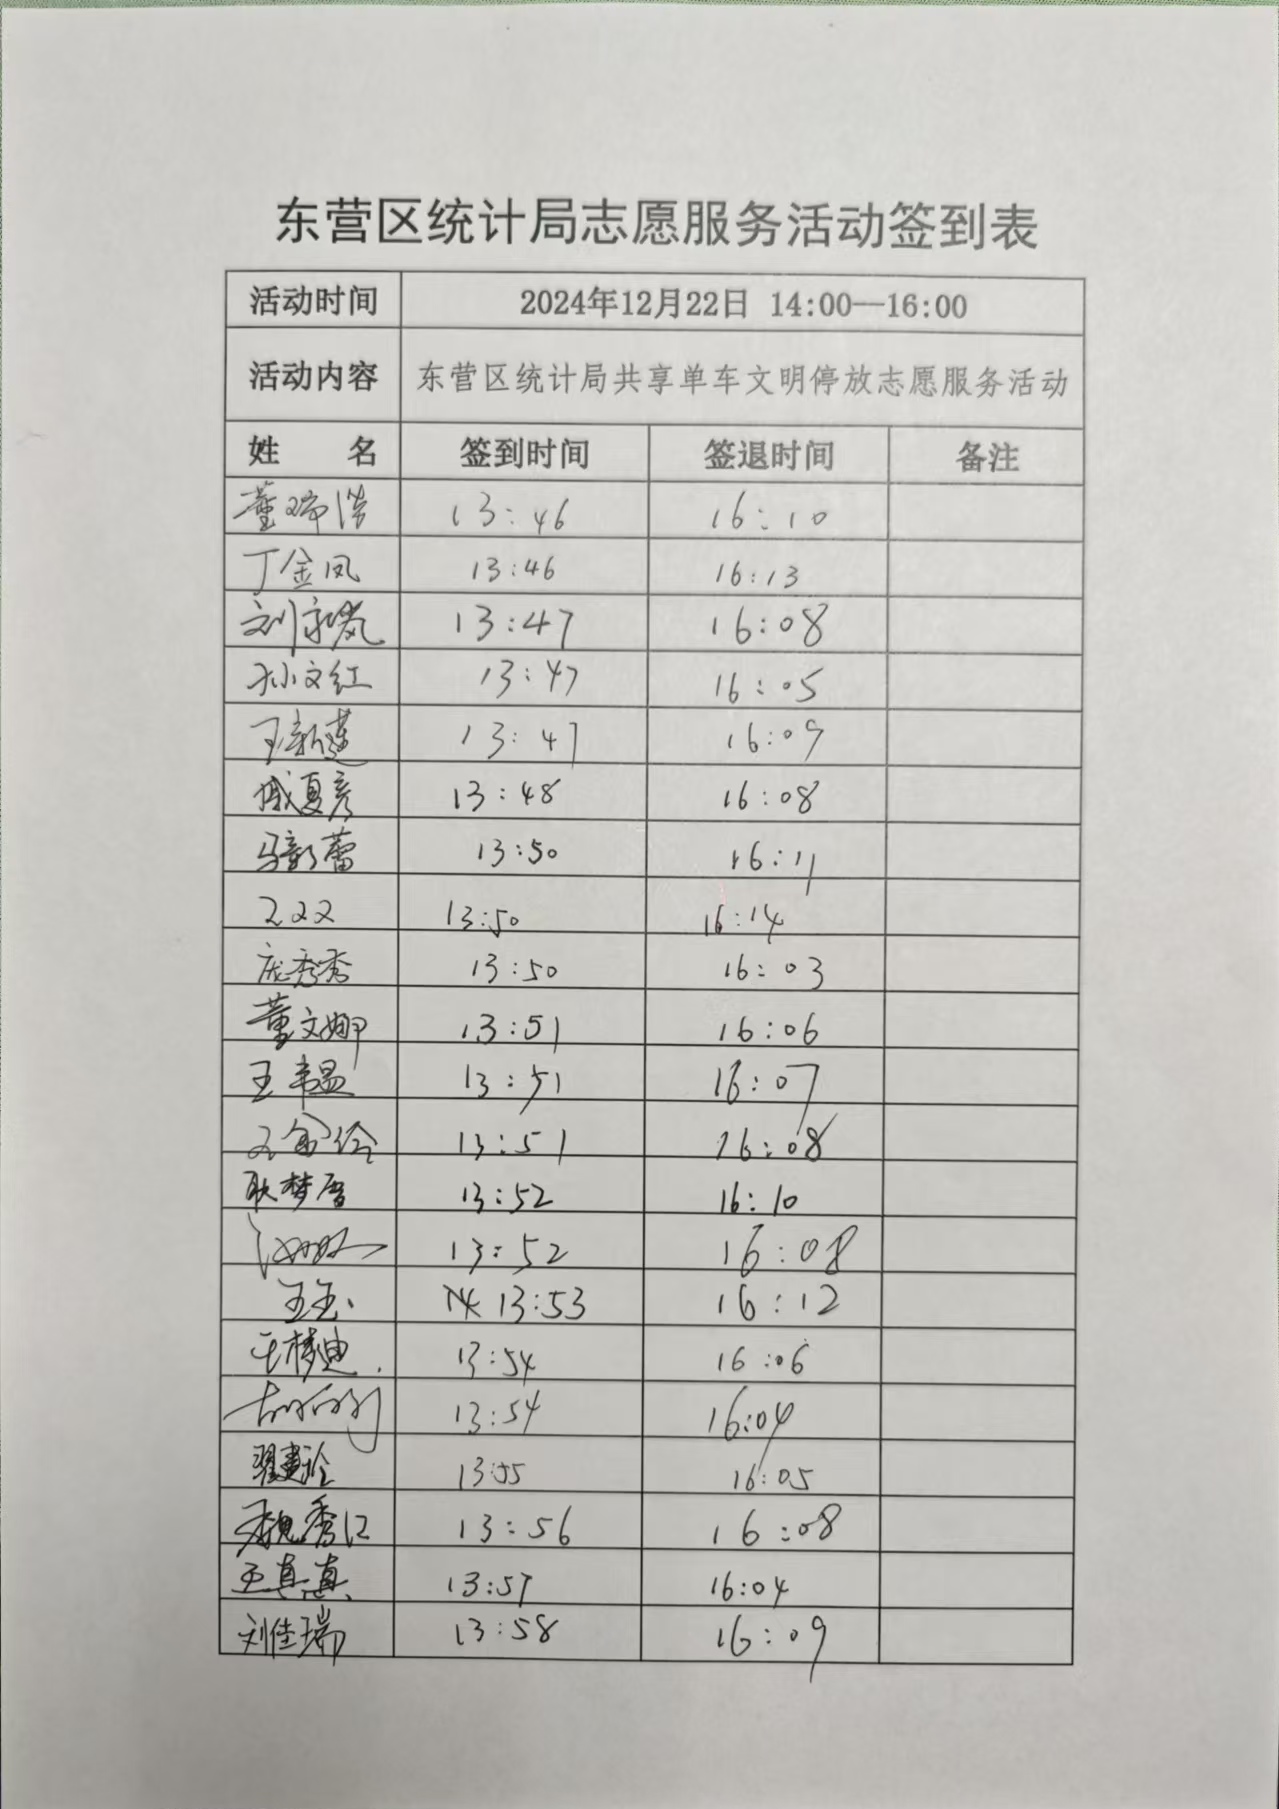 东营区统计局志愿服务活动签到表
活动时间 2024年12月22日 14:00—16:00
活动内容 东营区统计局共享单车文明停放志愿服务活动
姓 名 签到时间 签退时间 备注
董瑞浩 13:46 16:10
丁金凤 13:46 16:13
刘 13:47 16:08
孙文红 13:47 16:05
王新莲 13:47 16:09
臧夏彦 13:48 16:08
马新蕾 13:50 16:11
13:50 16:14
庞秀秀 13:50 16:03
董文娜 13:51 16:06
王韦昷 13:51 16:07
13:51 16:08
耿梦唐 13:52 16:10
13:52 16:08
王玉 13:53 16:12
王梦迪 13:54 16:06
13:54 16:04
翟建玲 13:55 16:05
魏秀江 13:56 16:08
王真真 13:57 16:04
刘佳瑞 13:58 16:09